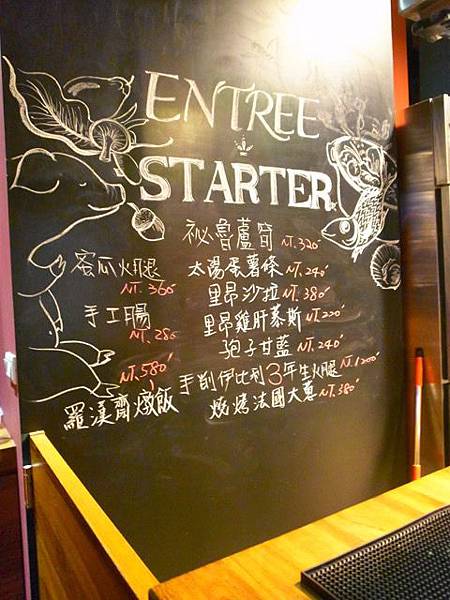 ENTREE
STARTER
祕魯蘆筍 NT.320
太陽蛋薯條 NT.240
里昂沙拉 NT.380
里昂雞肝慕斯 NT.220
孢子甘藍 NT.240
手削伊比利3年生火腿 NT.1200
燒烤法國大蔥 NT.380
蜜瓜火腿
NT.360
手工腸
NT.280
NT.580
羅漢齋燉飯